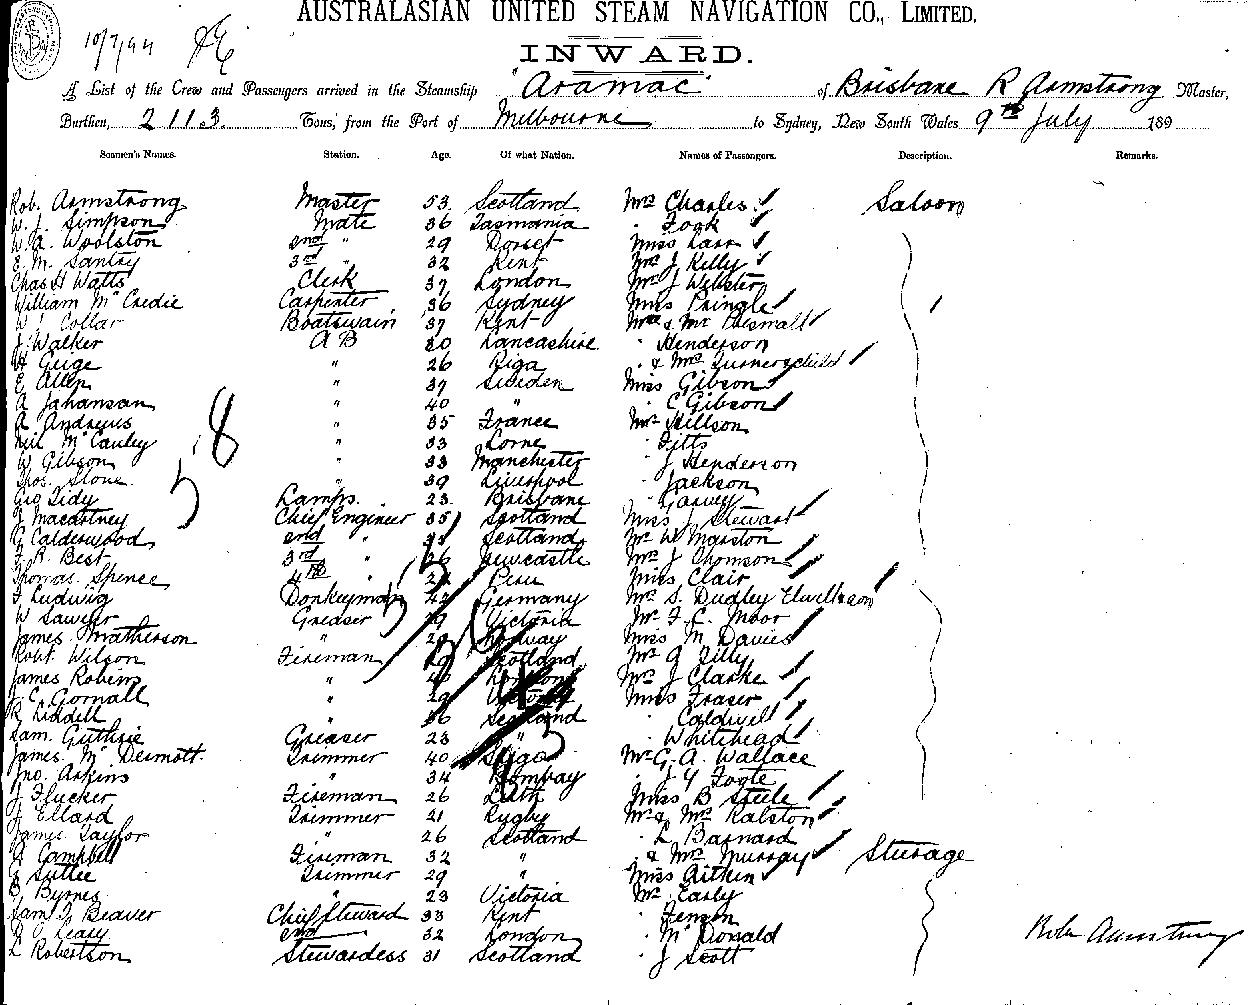 AUSTRALASIAN UNITED STEAM NAVIGATION CO., LIMITED.
10/7/94
INWARD.
A List of the Crew and Passengers arrived in the Steamship "Aramac" of Brisbane R Armstrong Master,
Burthen, 2113 Tons, from the Port of Melbourne to Sydney, New South Wales 9th July 189
Seamen's Names. Station. Age. Of what Nation. Names of Passengers. Description. Remarks.
Rob. Armstrong Master 53 Scotland Mrs Charles Saloon
W. J. Simpson Mate 36 Tasmania " Fook
W. A. Woolston 2nd " 29 Dorset Miss
E. M. Santry 3rd " 32 Kent Mrs J Kelly
Chas H Watts Clerk 37 London Mrs J Webster
William McCredie Carpenter 36 Sydney Miss Pringle
W. J. Collar Boatswain 37 Kent Mrs & Mr
J Walker A B 30 Lancashire " Henderson
H Geige " 26 Riga " & Mrs
E Allen " 37 Sweden Miss Gibson
A Johansan " 40 " " C Gibson
A Andrews " 35 France Mr Hillson
Neil McCauley " 33 Lorne " Fitts
W Gibson " 33 Manchester " J Henderson
Thos. Stone " 39 Liverpool " Jackson
Geo Tidy Lamps. 23 Brisbane " Garvey
J Macartney Chief Engineer 35 Scotland Miss J Stewart
G Calderwood 2nd " Scotland Mr W Marston
F. R. Best 3rd " 26 Newcastle Mrs J Thomson
Thomas Spence 4th " Peru Miss Clair
F Ludwig Donkeyman 42 Germany Mr S. Dudley
W Sawyer Greaser 29 Victoria Mr F. C. Moor
James Matherson " 29 Norway Miss M Davies
Robt. Wilson Fireman Scotland Mr A Tilly
James Robins " 40 London Mrs J Clarke
J. C. Gornall " 29 Victoria Miss Fraser
R Liddell " 36 Scotland " Caldwell
Sam. Guthrie Greaser 23 " " Whitehead
James McDermott. Trimmer 40 Sligo Mr G. A. Wallace
Jno. Askins " 34 Bombay " J Y Foote
J Flucker Fireman 26 Leith Miss B Steele
J Ellard Trimmer 21 Rugby Mr & Mrs Ralston
James Taylor " 26 Scotland " L Barnard
A Campbell Fireman 32 " " & Mrs Murray Steerage
G Suttee Trimmer 29 " Miss Aitken
B Byrnes " 23 Victoria Mr Early
Sam J Beaver Chief Steward 33 Kent "
A J Leary 2nd 32 London " McDonald
L Robertson Stewardess 31 Scotland " J Scott
Rob Armstrong